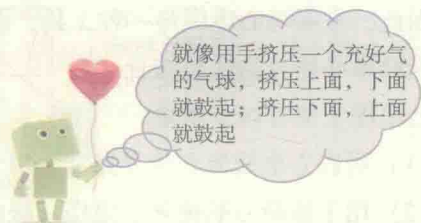 就像用手挤压一个充好气
的气球，挤压上面，下面
就鼓起；挤压下面，上面
就鼓起